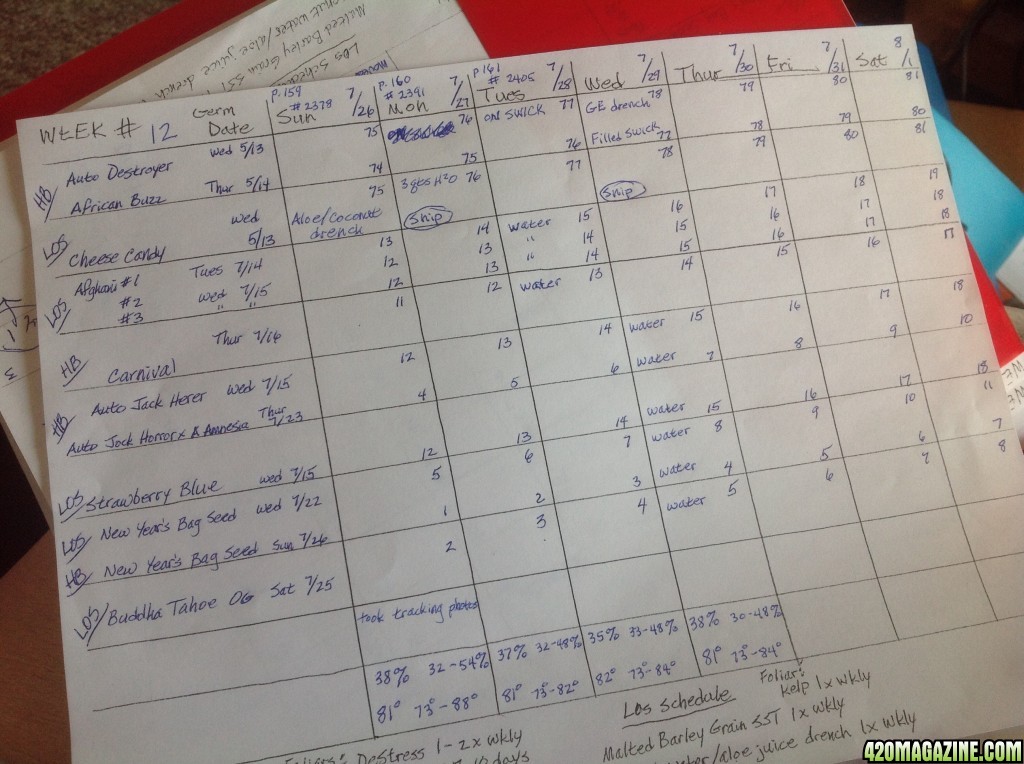 Malted Barley Grain SST
Los Schedule
WEEK # 12
Germ Date
p.159 # 2378 Sun 7/26
p.160 # 2391 Mon 7/27
p.161 # 2405 Tues 7/28
Wed 7/29
Thur 7/30
Fri 7/31
Sat 8/1
HB/ Auto Destroyer Wed 5/13 75 76 ON SWICK 77 GE drench 78 79 80 81
African Buzz Thur 5/14 74 75 76 Filled SWICK 77 78 79 80
LOS/ Cheese Candy Wed 5/13 75 3gts H2O 76 77 78 79 80 81
Aloe/Coconut drench Snip Snip
LOS/ Afghani #1 Tues 7/14 13 14 water 15 16 17 18 19
#2 Wed 7/15 12 13 " 14 15 16 17 18
#3 " " 12 13 " 14 15 16 17 18
HB/ Carnival Thur 7/16 11 12 water 13 14 15 16 17
HB/ Auto Jack Herer Wed 7/15 12 13 14 water 15 16 17 18
Auto Jock Horror x A Amnesia Thur 7/23 4 5 6 water 7 8 9 10
LOS/ Strawberry Blue Wed 7/15 12 13 14 water 15 16 17 18
LOS/ New Year's Bag Seed Wed 7/22 5 6 7 water 8 9 10 11
HB/ New Year's Bag Seed Sun 7/26 1 2 3 water 4 5 6 7
LOS/ Buddha Tahoe OG Sat 7/25 2 3 4 water 5 6 7 8
took tracking photos
38% 32-54% 37% 32-48% 35% 33-48% 38% 30-48%
81° 73°-88° 81° 73°-82° 82° 73°-84° 81° 73°-84°
Los Schedule
Foliar: Kelp 1x wkly
Foliars: DeStress 1-2x wkly
Malted Barley Grain SST 1x wkly
water/aloe juice drench 1x wkly
days
420MAGAZINE.COM